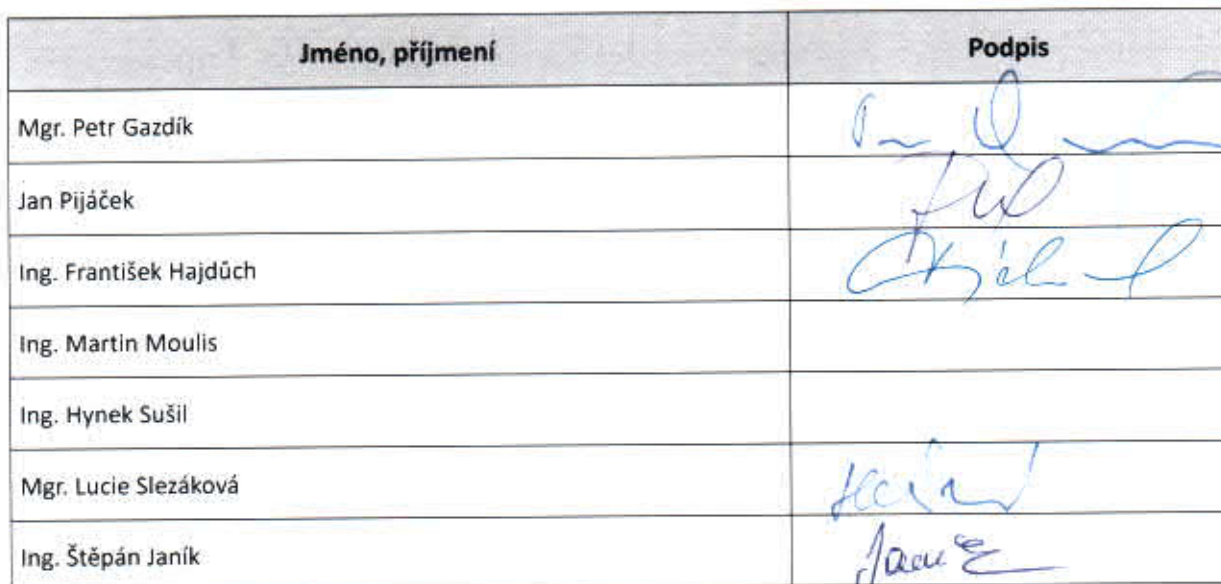 Jméno, příjmení Podpis
Mgr. Petr Gazdík
Jan Pijáček
Ing. František Hajdůch
Ing. Martin Moulis
Ing. Hynek Sušil
Mgr. Lucie Slezáková
Ing. Štěpán Janík